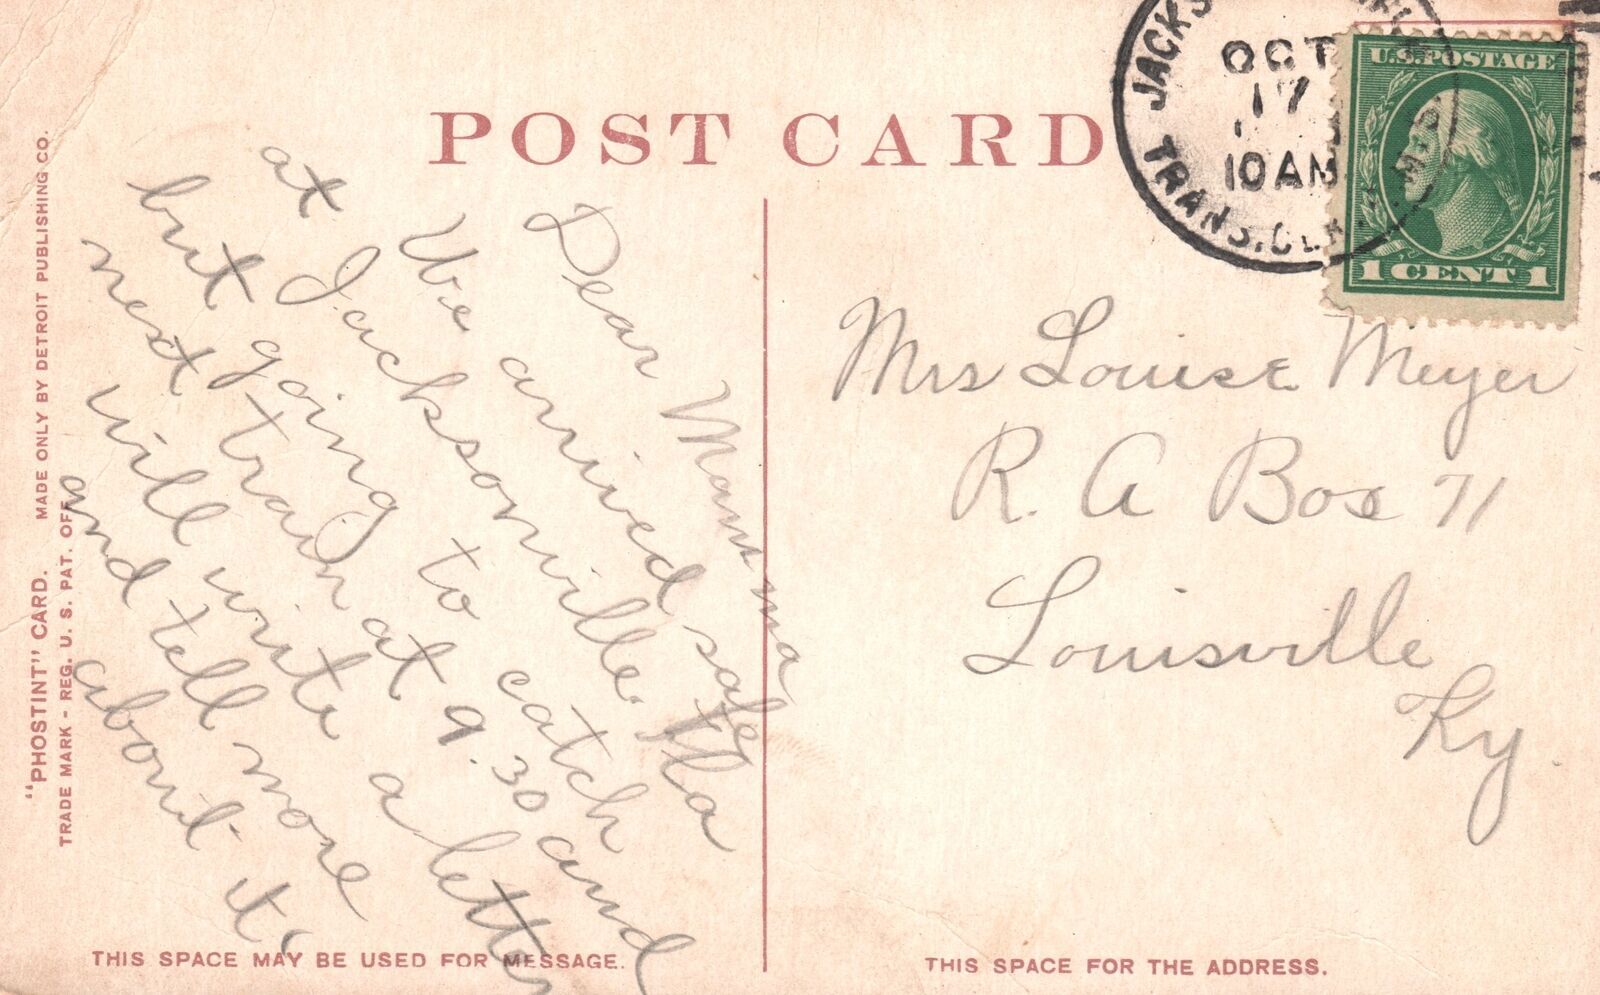 POST CARD
JACKS
OCT
17
10 AM
TRANS. CLK.
U.S. POSTAGE
1 CENT 1
Dear Mamma
We arrived safe
at Jacksonville Fla
but going to catch
next train at 9.30 and
will write a letter
and tell more
about it.
Mrs Louise Meyer
R. A Box 71
Louisville
Ky.
"PHOSTINT" CARD. MADE ONLY BY DETROIT PUBLISHING CO.
TRADE MARK - REG. U. S. PAT. OFF.
THIS SPACE MAY BE USED FOR MESSAGE.
THIS SPACE FOR THE ADDRESS.